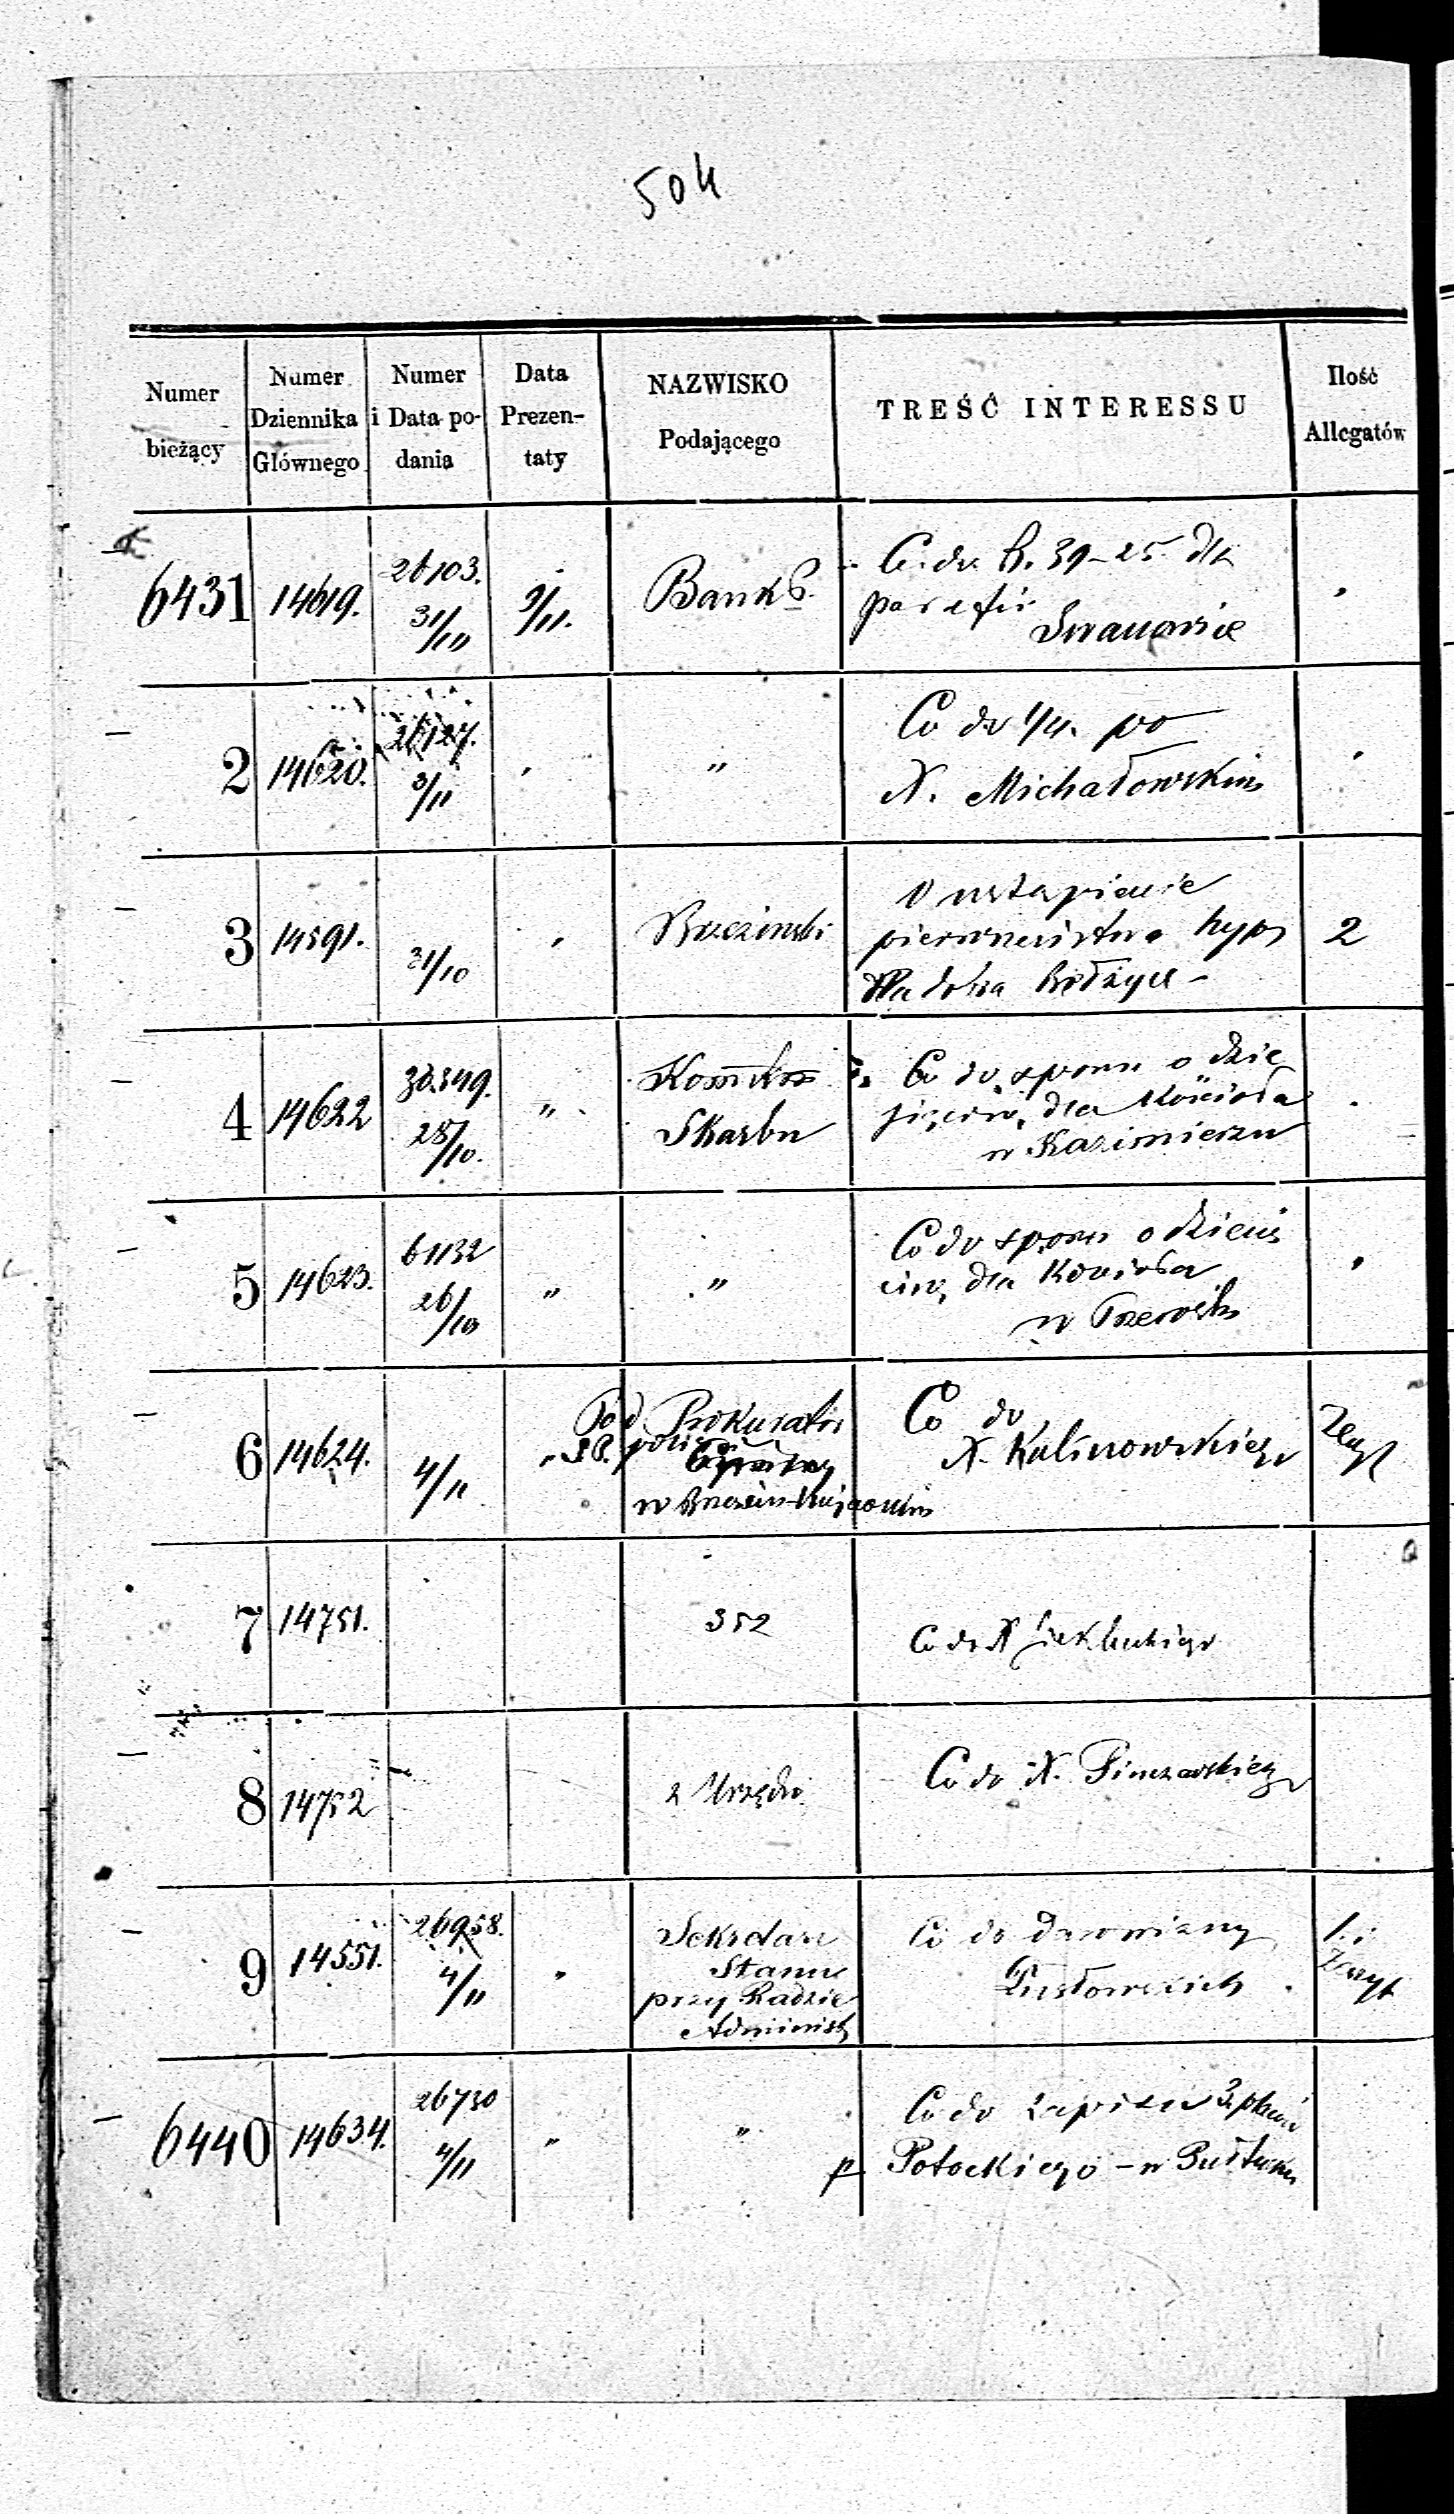 504
Numer bieżący
Numer Dziennika Głównego
Numer i Data podania
Data Prezentaty
NAZWISKO Podającego
TREŚĆ INTERESSU
Ilość Allegatów
6431 14619. 26103. 31/10 9/11. Bank P. Co do fl. 39-25 dla
parafii
Iwanowice
2 14620. 26127. 3/11 " " Co do 1/4. po
X. Michałowskim
3 14591. 31/10 " O ustąpienie
pierwszeństwa hyp 2
dla dobra
4 14622 28/10. " Skarbu Co do sporu o dzie
sięcinę dla Kościoła
w Kazimierzu
5 14623. 61132 26/10 " " Co do sporu o dziesię
cinę dla Kościoła
w
6 14624. 4/11 " Pod Prokurator Co do
X. Kalinowskiego
w Brześciu-Kujawskim
7 14751. 352 Co do X
8 14752 z Urzędu Co do X. Pinczowskiego
9 14551. 26958. 4/11 " Sekretarz Co do darowizny 1.
Stanu
przy Radzie
Administ
6440 14634. 26730 4/11 " " Co do zapisu
p Potockiego - w Pułtusku